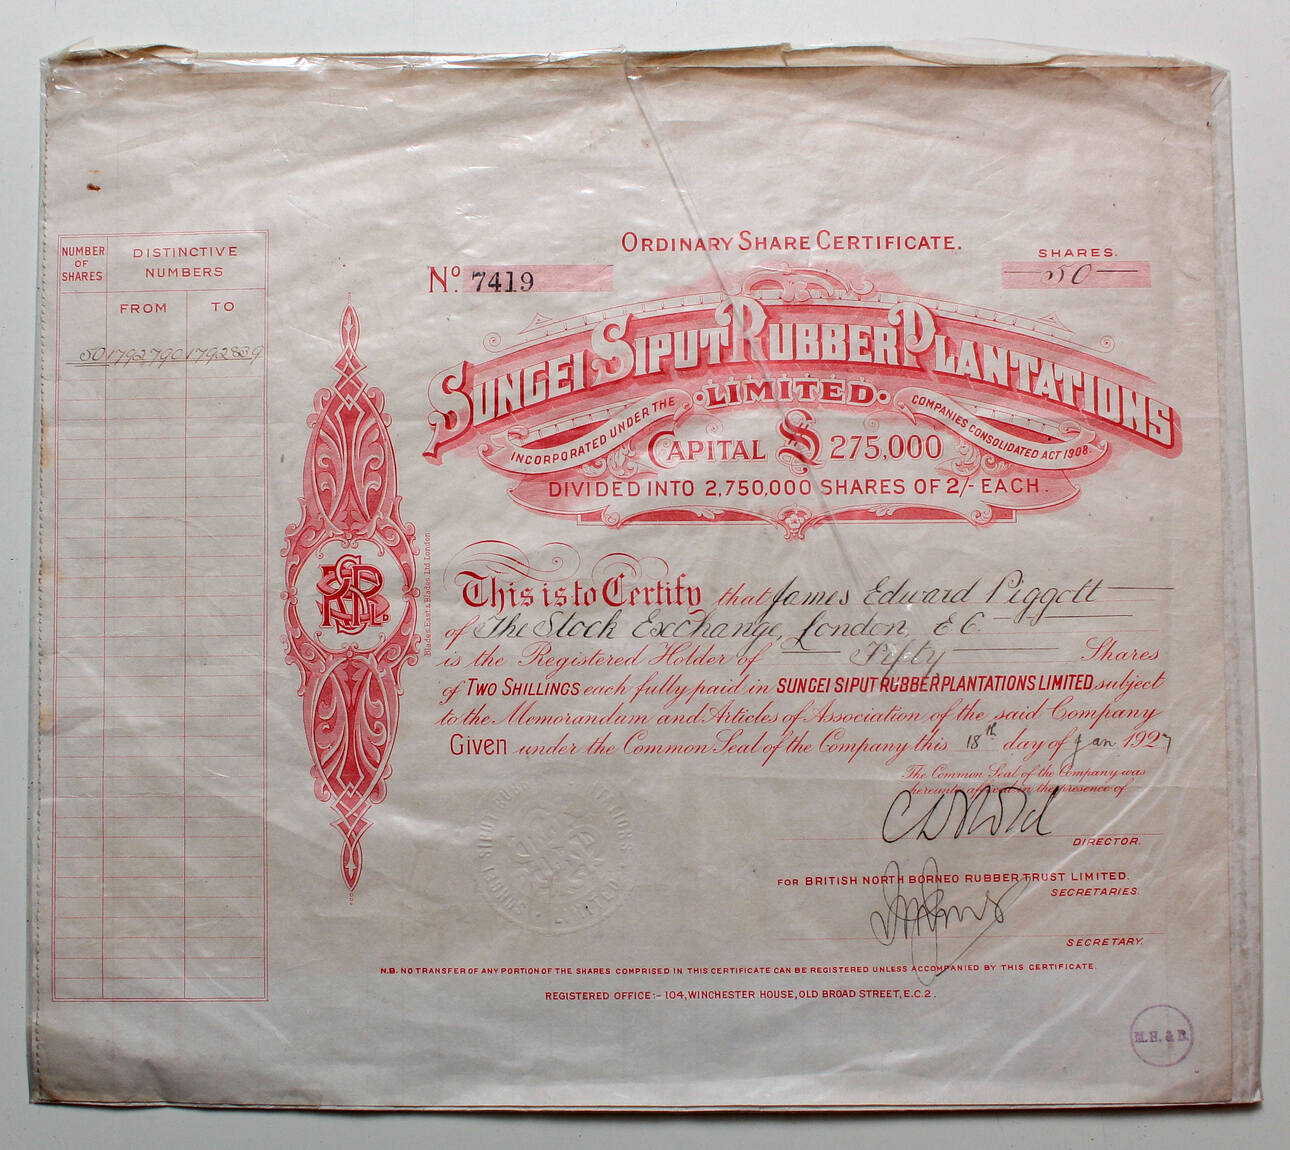 ORDINARY SHARE CERTIFICATE.
Nº. 7419
SHARES.
50
NUMBER OF SHARES
DISTINCTIVE NUMBERS
FROM TO
50 1792790 1792839
SUNGEI SIPUT RUBBER PLANTATIONS
LIMITED
INCORPORATED UNDER THE COMPANIES CONSOLIDATED ACT 1908
CAPITAL 275,000
DIVIDED INTO 2,750,000 SHARES OF 2/- EACH.
This is to Certify that James Edward Piggott
of The Stock Exchange, London, E C.
is the Registered Holder of Fifty Shares
of TWO SHILLINGS each fully paid in SUNGEI SIPUT RUBBER PLANTATIONS LIMITED subject
to the Memorandum and Articles of Association of the said Company
Given under the Common Seal of the Company this 18th day of Jan 1927
The Common Seal of the Company was
hereunto affixed in the presence of
DIRECTOR.
FOR BRITISH NORTH BORNEO RUBBER TRUST LIMITED.
SECRETARIES.
SECRETARY.
N.B. NO TRANSFER OF ANY PORTION OF THE SHARES COMPRISED IN THIS CERTIFICATE CAN BE REGISTERED UNLESS ACCOMPANIED BY THIS CERTIFICATE.
REGISTERED OFFICE:- 104, WINCHESTER HOUSE, OLD BROAD STREET, E.C.2.
Blades, East & Blades Ltd London
SUNGEI SIPUT RUBBER PLANTATIONS LIMITED
M. H. & B.